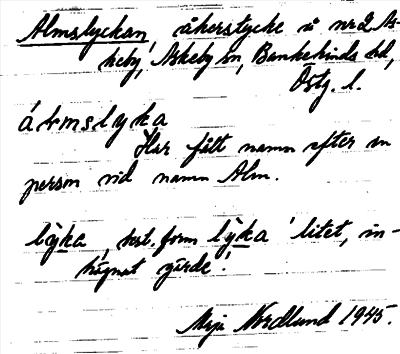 Almslyckan, åkerstycke å nr 2 As-
keby, Askeby sn, Bankekinds hd,
Östg. l.
álmslyka
Har fått namn efter en
person vid namn Alm.
lỳka, best. form lỳka 'litet, in-
hägnat gärde'.
Maja Nordlund 1945.